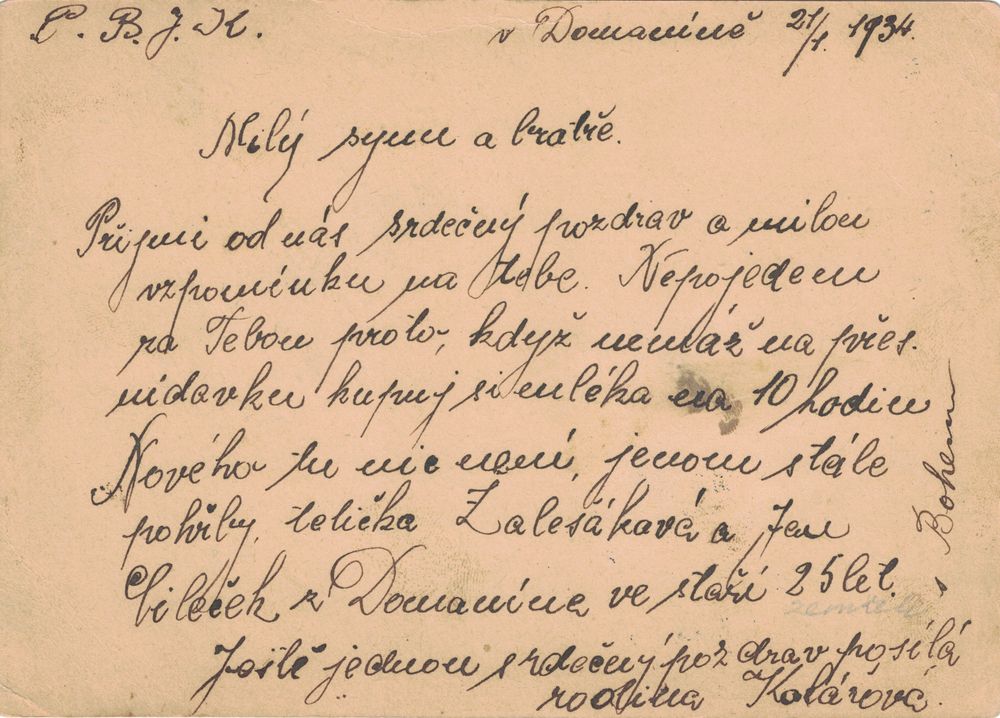 P. B. J. K.
v Domaníně 21/1. 1934.
Milý synu a bratře.
Přijmi od nás srdečný pozdrav a milou
vzpomínku na tebe. Nepojedem
za Tebou proto, když nemáž na přes.
nidavku kupuj si mléka na 10 hodin
Nového tu nic není, jenom stále
pohřby, tetička Zalešákavá a Jen
Cileček z Domanína ve staří 25 let.
zemřela
Ještě jednou srdečný pozdrav posílá
rodina Kolářová.
s Bohem